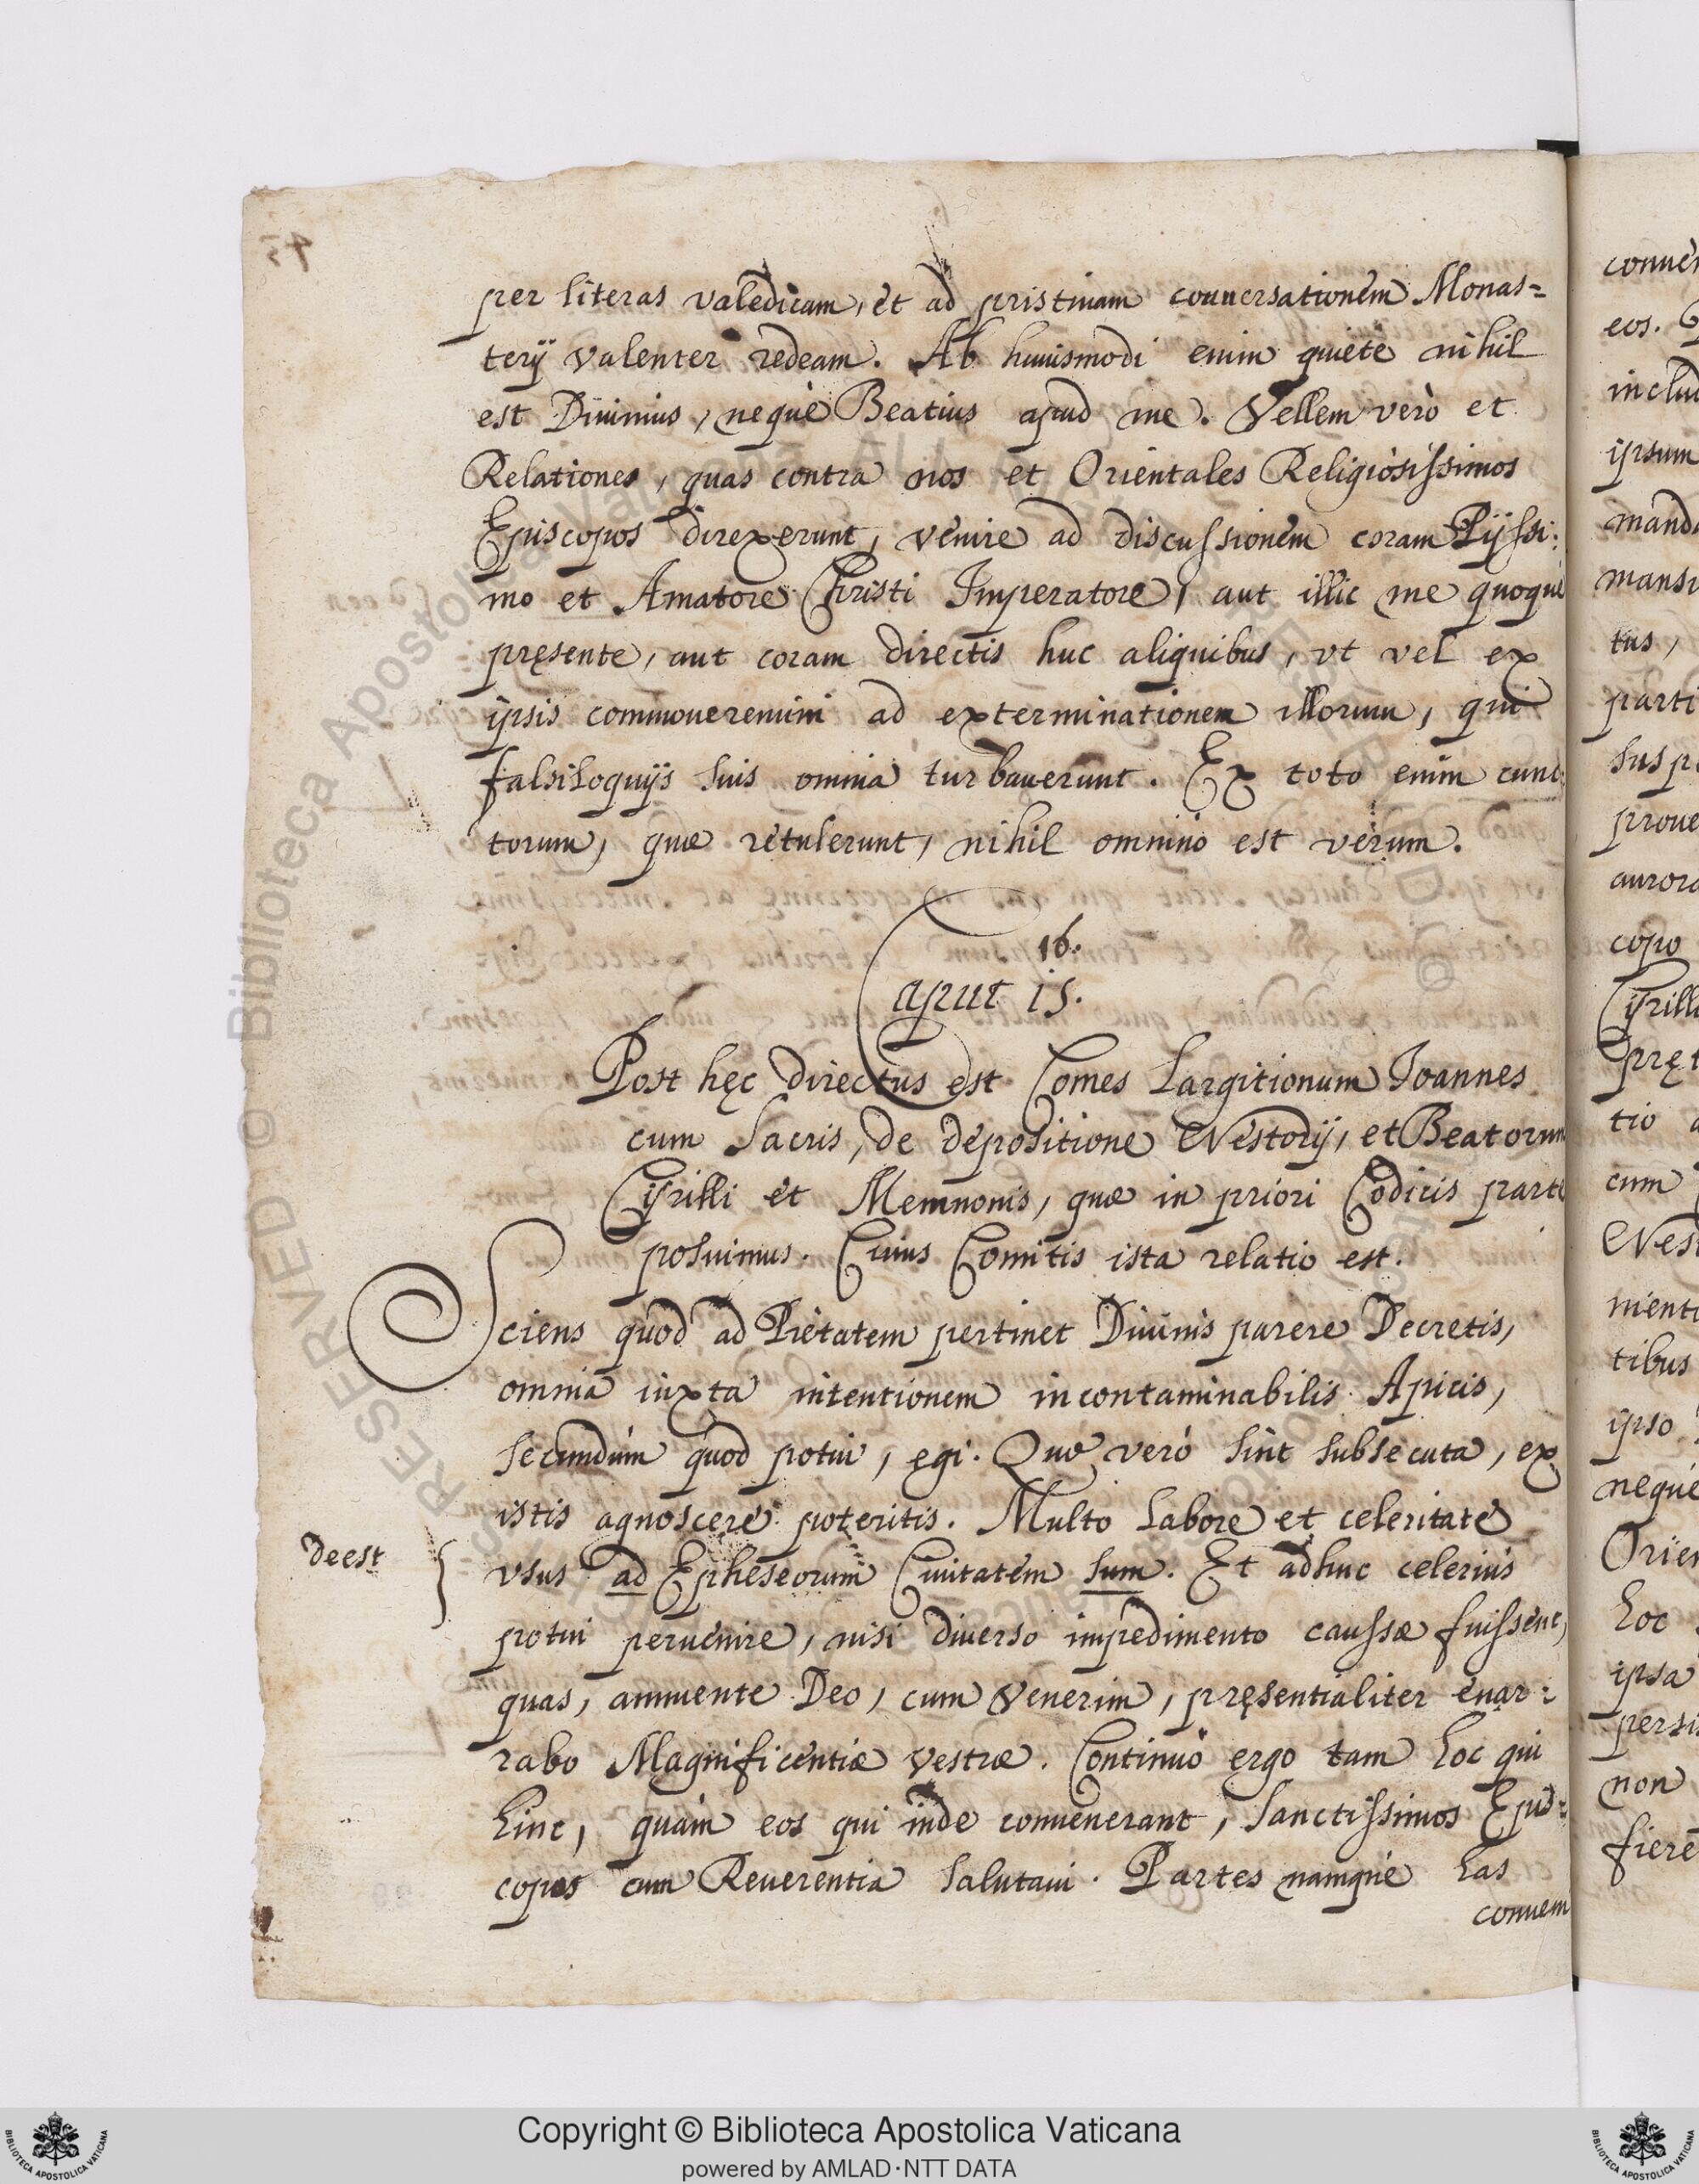 per literas valedicam, et ad pristinam conuersationem Monas=
terij valenter redeam. Ab huiusmodi enim quiete nihil
est Diuinius, neque Beatius apud me. Vellem verò et
Relationes, quas contra nos et Orientales Religiosissimos
Episcopos direxerunt, venire ad discussionem coram Pijssi:
mo et Amatore Christi Imperatore, aut illic me quoque
pręsente, aut coram directis huc aliquibus, vt vel ex
ipsis commoueremini ad exterminationem illorum, qui
falsiloquijs suis omnia turbauerunt. Ex toto enim cunc
torum, quæ retulerunt, nihil omninò est verum.
16.
Caput 15.
Post hęc directus est Comes Largitionum Ioannes
cum Sacris, de depositione Nestorij, et Beatorum
Cyrilli et Memnonis, quæ in priori Codicis parte
posuimus. Cuius Comitis ista relatio est.
Sciens quod ad Pietatem pertinet Diuinis parere Decretis,
omnia iuxta intentionem incontaminabilis Apicis,
secundùm quod potui, egi. Quæ verò sint subsecuta, ex
istis agnoscere poteritis. Multo labore et celeritate
deest
vsus ad Ephesorum Ciuitatem sum. Et adhuc celerius
potui peruenire, nisi diuerso impedimento caussæ fuissent,
quas, annuente Deo, cum venerim, pręsentialiter enar:
rabo Magnificentiæ vestræ. Continuò ergo tam hoc qui
hinc, quàm eos qui inde conuenerant, Sanctissimos Epis=
copos cum Reuerentia salutaui. Partes namque has
conueni
conuen
eos.
inclu
ipsum
manda
mansi
tus,
parti
susp
proue
aurora
copo
Cyrill
pręt
tio
cum
Nest
nient
tibus
ipso
neque
Orien
hoc
ipsa
persi
non
fiere
© Biblioteca Apostolica Vaticana
Copyright © Biblioteca Apostolica Vaticana
powered by AMLAD·NTT DATA
BIBLIOTECA APOSTOLICA VATICANA
BIBLIOTECA APOSTOLICA VATICANA